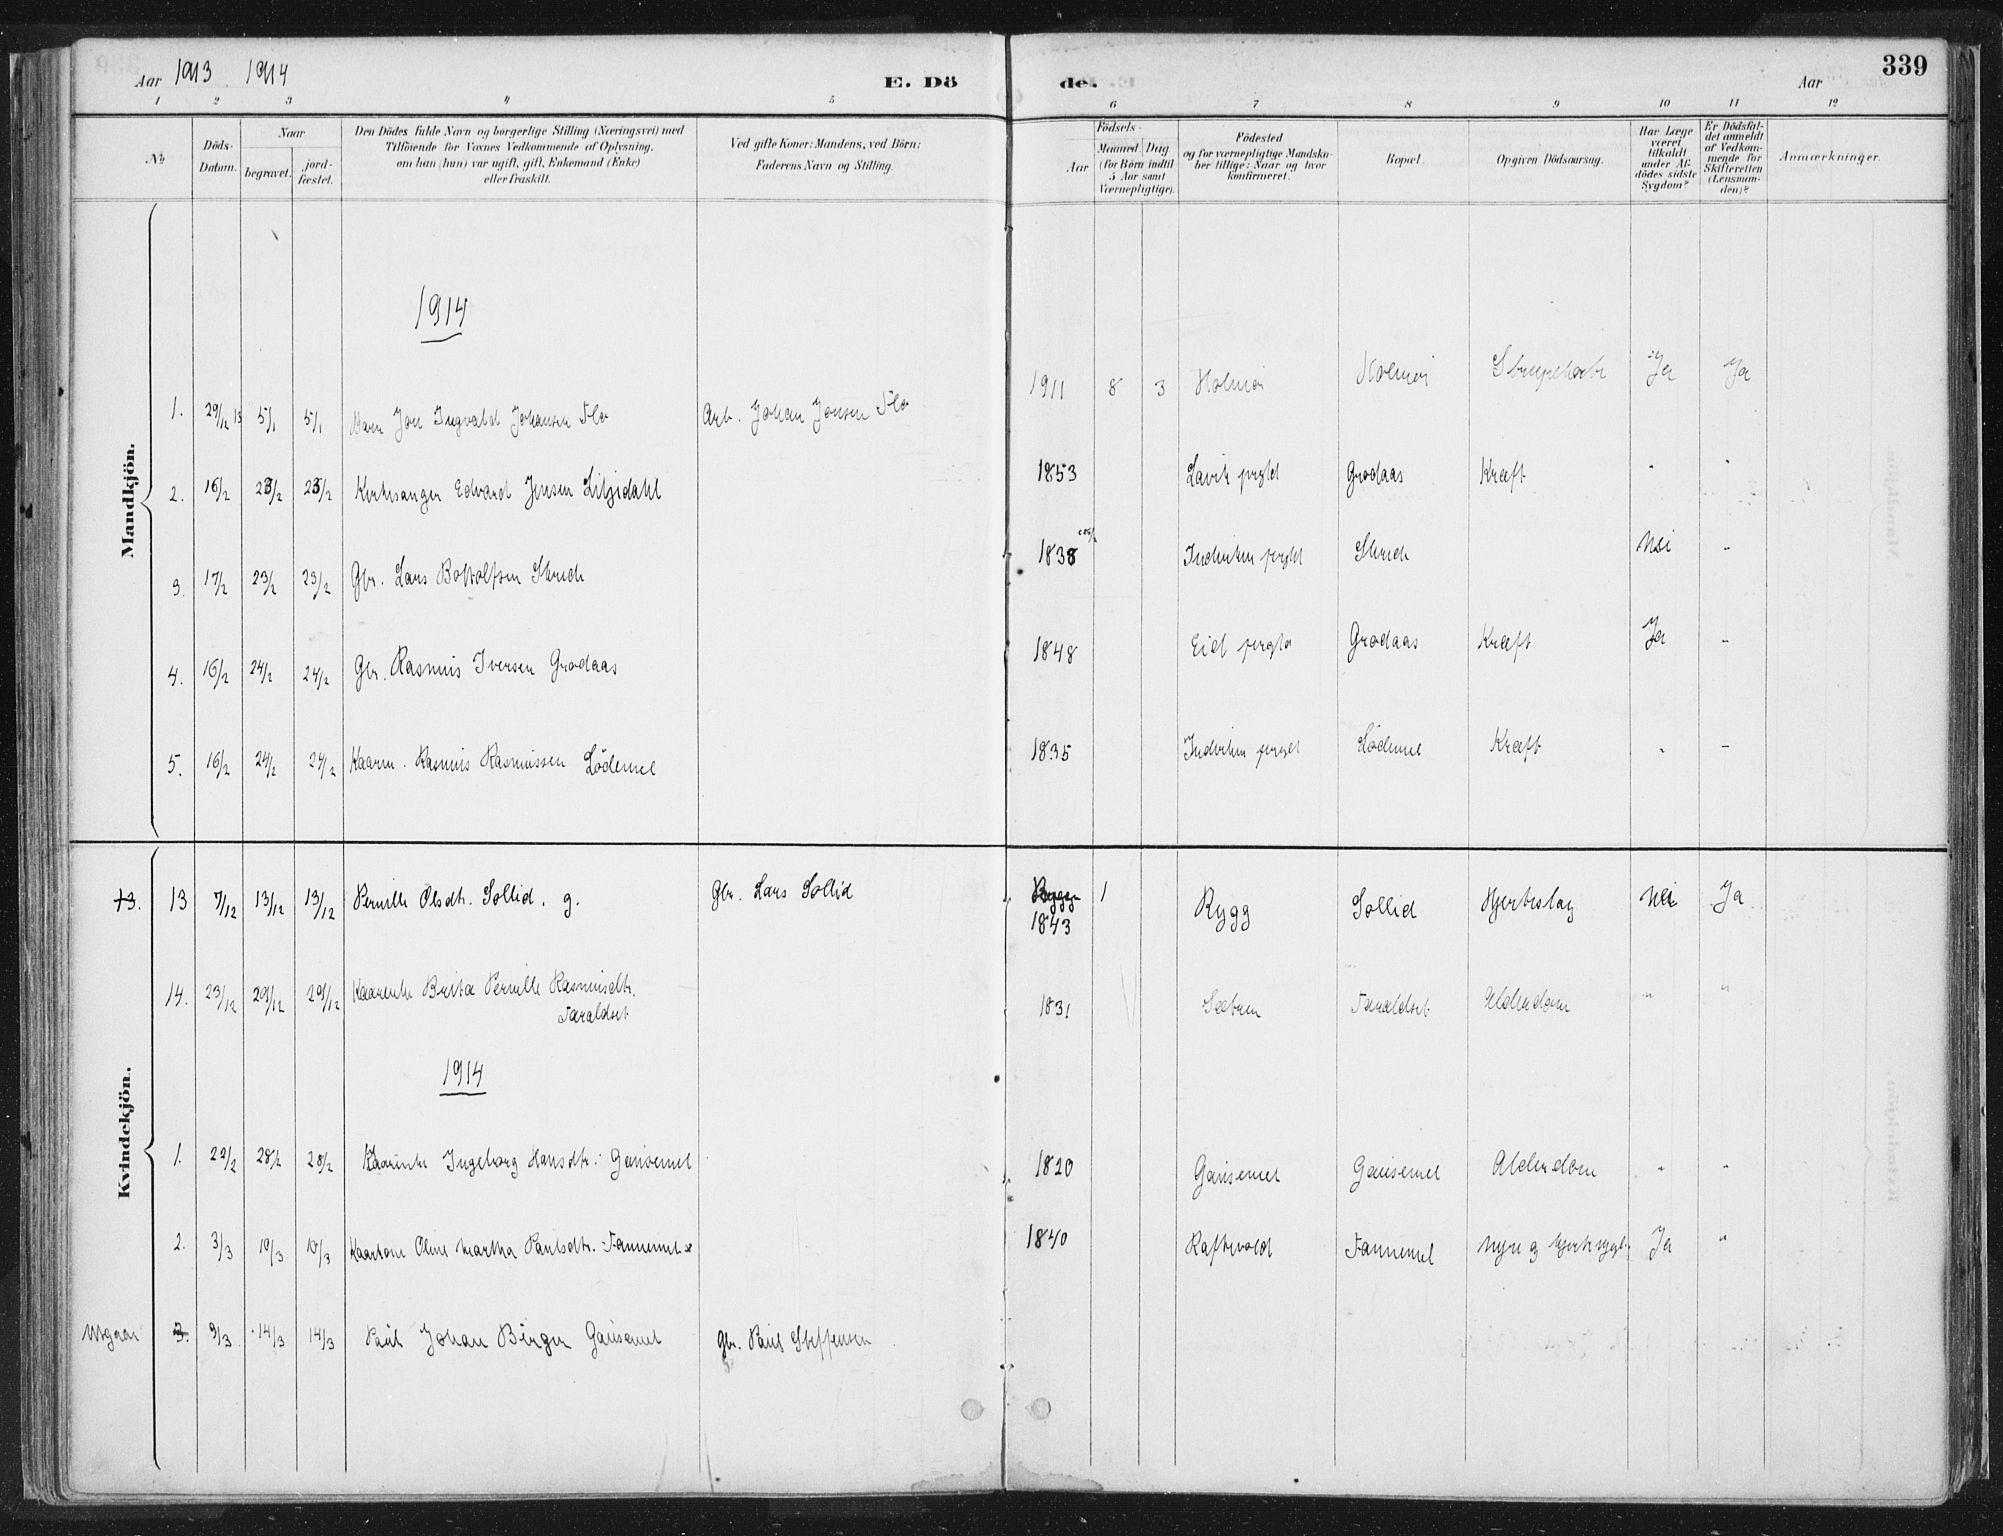 Aar 1913 1914 E. Dö de. Aar 339
1 2 3 4 5 6 7 8 9 10 11 12
No
Döds-Datum.
Naar
begravet.
jord-fæstet.
Den Dödes fulde Navn og borgerlige Stilling (Næringsvei) med
Tilföiende for Voxnes Vedkommende af Oplysning,
om han (hun) var ugift, gift, Enkemand (Enke)
eller fraskilt.
Ved gifte Koner: Mandens, ved Börn:
Faderens Navn og Stilling.
Födsels-
Aar
Maaned Dag
(for Börn indtil
5 Aar samt
Værnepligtige).
Födested
og for værnepligtige Mandska-
ber tillige: Naar og hvor
konfirmeret.
Bopæl.
Opgiven Dödsaarsag.
Har Læge
været
tilkaldt
under Af-
dödes sidste
Sygdom?
Er Dödsfal-
det anmeldt
af Vedkom-
mende for
Skifteretten
(Lensman-
den)?
Anmærkninger.
Mandkjön.
1914
1. 29/12 13 5/1 5/1 Barn Jon Ingvald Johansen Flo Arb. Johan Jonsen Flo 1911 8 3 Holmöi Holmöi Strupehoste Ja Ja
2. 16/2 23/2 23/2 Kirkesanger Edvard Jensen Litjedahl 1853 Lavik prgld Grodaas Kræft " "
3. 17/2 23/2 23/2 Gbr. Lars Bottolfsen Skrede 1838 Indviken prgld Skrede Nei "
4. 16/2 24/2 24/2 Gbr. Rasmus Iversen Grodaas 1848 Eid prgld Grodaas Kræft Ja "
5. 16/2 24/2 24/2 Kaarm. Rasmus Rasmussen Lödemel 1835 Indviken prgld Lödemel Kræft " "
Kvindekjön.
13. 13 7/12 13/12 13/12 Pernille Olsdtr. Sollid. g. Gbr. Lars Sollid Rygg 1843 1 Rygg Sollid Hjerteslag Nei Ja
14. 23/12 29/12 29/12 Kaarenke Brita Pernille Rasmusdtr.
Taraldset 1831 Sætren Taraldset Alderdom " "
1914
1. 22/2 28/2 28/2 Kaarenke Ingeborg Hansdtr. Gausemel 1820 Gausemel Gausemel Alderdom " "
2. 3/3 10/3 10/3 Kaarkone Oline Martha Paulsdtr. Tannemel 1840 Raftevold Tannemel Nyre og hjertesygd. Ja "
Utgaar 3. 9/3 14/3 14/3 Paul Johan Birger Gausemel Gbr. Paul Steffensen